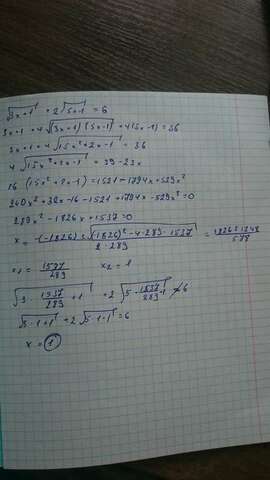 √(3x+1) + 2√(5x-1) = 6
3x+1 + 4√((3x+1)(5x-1)) + 4(5x-1) = 36
3x+1+4√(15x²+2x-1) = 36
4√(15x²+2x-1) = 39-23x
16(15x²+2x-1) = 1521-1794x+529x²
240x²+32x-16-1521+1794x-529x²=0
289x²-1826x+1537=0
x = (-(-1826)±√((1826)²-4·289·1537))/(2·289) = (1826±1248)/578
x1 = 1537/289 x2 = 1
√(3·1537/289+1) + 2√(5·1537/289-1) ≠ 6
√(3·1+1) + 2√(5·1-1) = 6
x = 1